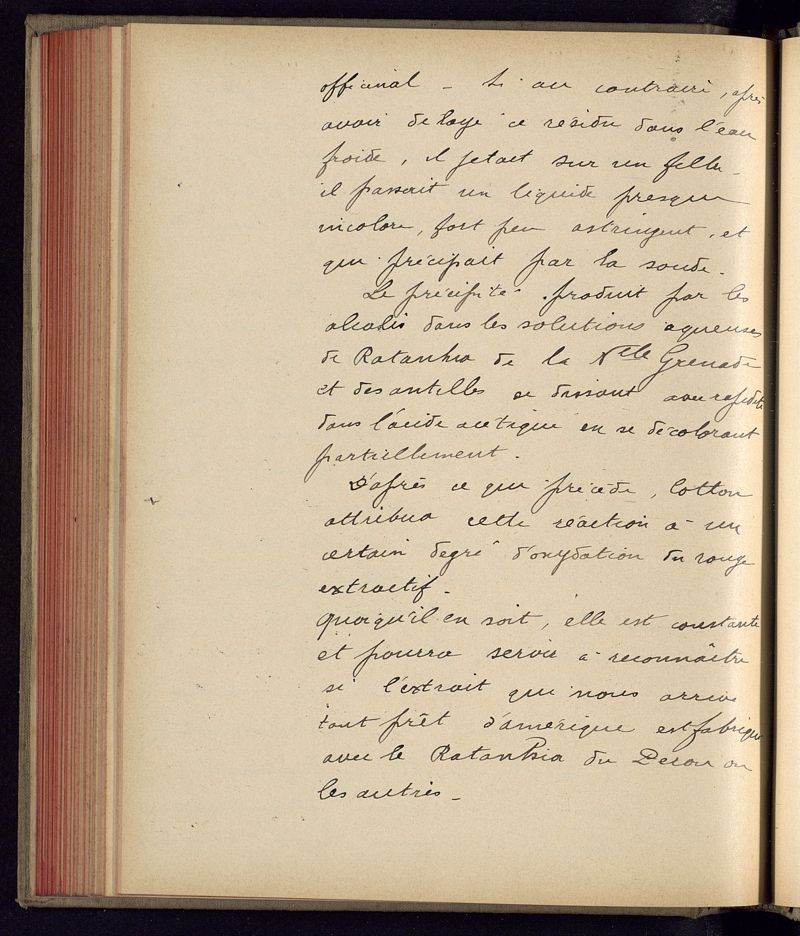 officinal - Si au contraire, après
avoir delayé ce résidu dans l'eau
froide, il jetait sur un filtre
il passait un liquide presque
incolore, fort peu astringent, et
qui précipait par la soude.
Le précipité produit par les
alcalis dans les solutions aqueuses
de Ratanhia de la Nelle Grenade
et des antilles se dissout avec rapidité
dans l'acide acétique en se décolorant
partiellement.
D'après ce qui précède, Cotton
attribua cette réaction à un
certain degré d'oxydation du rouge
extractif -
quoiqu'il en soit, elle est constante
et pourra servir à reconnaître
si l'extrait qui nous arrive
tout prêt d'amérique est fabriqué
avec le Ratanhia du Perou ou
les autres -